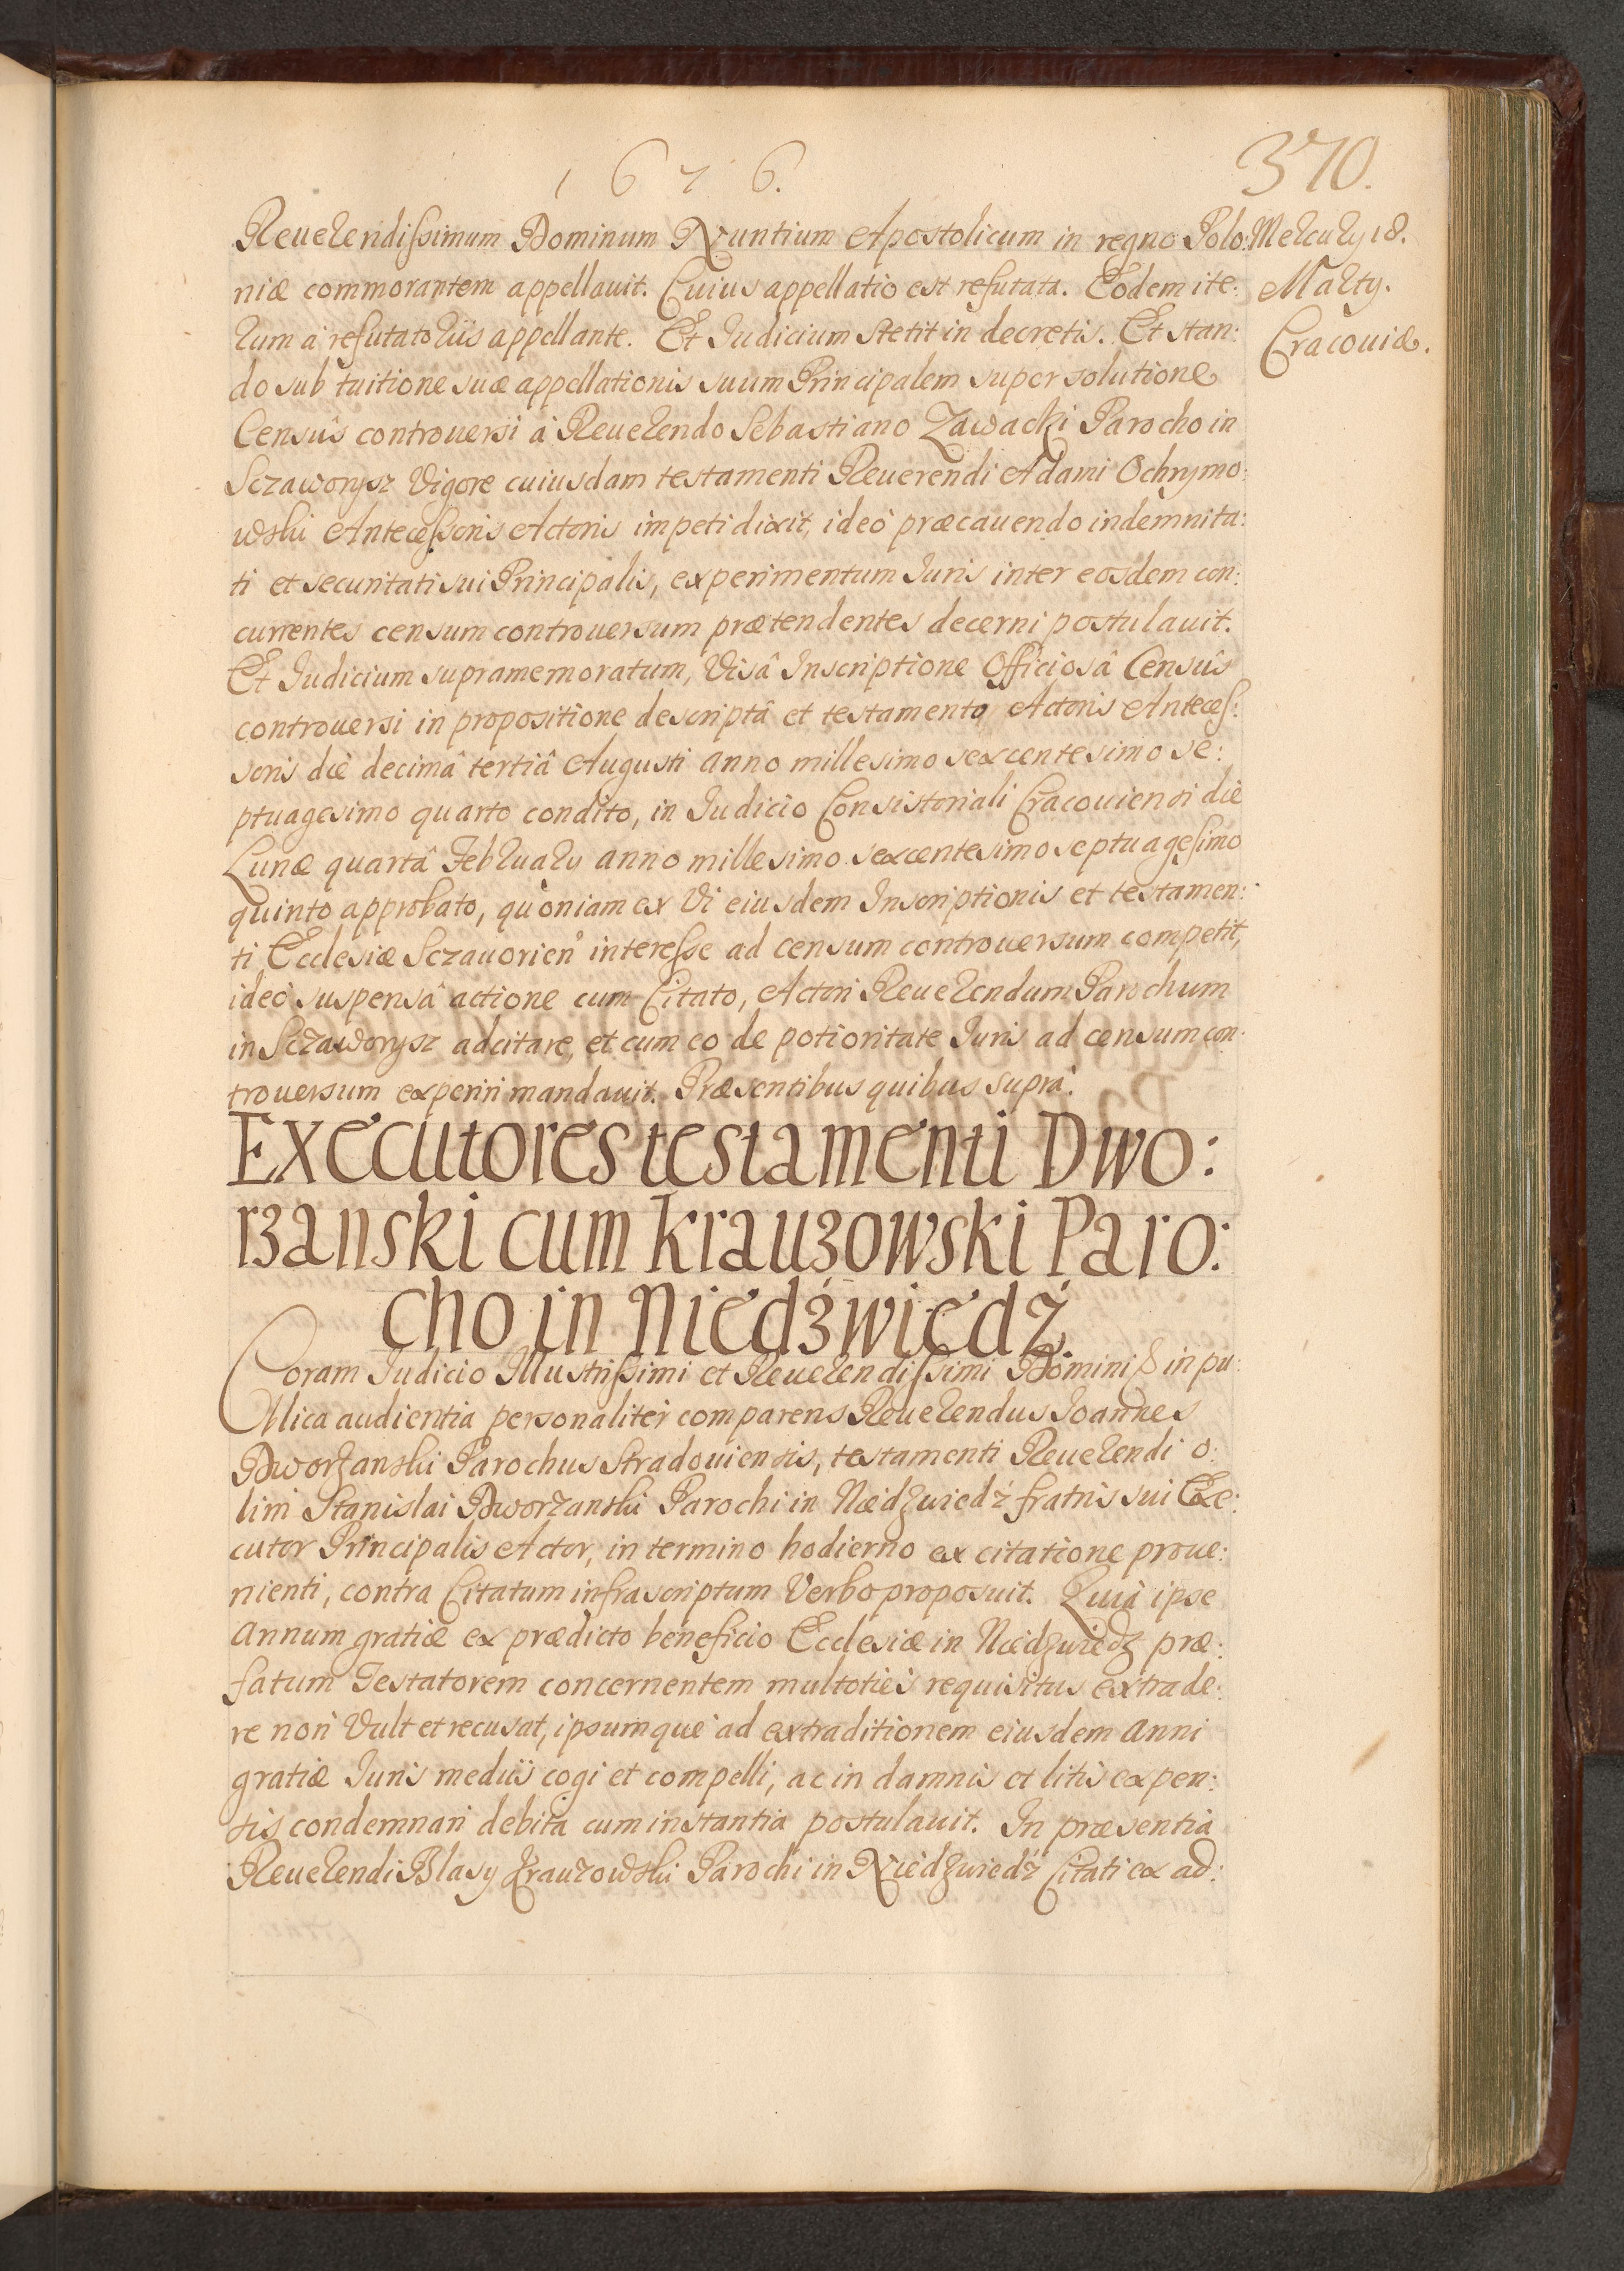 1676.
370.
Reuerendissimum Dominum Nuntium Apostolicum in regno Polo:
Mercurÿ 18.
Martÿ.
Cracouiæ.
niæ commorantem appellauit. Cuius appellatio est refutata. Eodem ite:
rum à refutatorÿs appellante. Et Iudicium stetit in decretis. Et stan:
do sub tuitione suæ appellationis suum Principalem super solutione
Censûs controuersi à Reuerendo Sebastiano Zawacki Parocho in
Sczaworysz Vigore cuiusdam testamenti Reuerendi Adami Ochrymo:
wski Antecessoris Actoris impeti dixit, ideò præcauendo indemnita:
ti et securitati sui Principalis, experimentum Iuris inter eosdem con:
currentes censum controuersum prætendentes decerni postulauit.
Et Iudicium supramemoratum, Visâ Inscriptione Officiosâ Censûs
controuersi in propositione descriptâ et testamento Actoris Anteces:
soris die decimâ tertiâ Augusti anno millesimo sexcentesimo se:
ptuagesimo quarto condito, in Iudicio Consistoriali Cracouiensi die
Lunæ quartâ Februarÿ anno millesimo sexcentesimo septuagesimo
quinto approbato, quoniam ex Vi eiusdem Inscriptionis et testamen:
ti Ecclesiæ Sczauorien interesse ad censum controuersum competit,
ideò suspensâ actione cum Citato, Actori Reuerendum Parochum
in Sczaworysz adcitare, et cum eo de potioritate Iuris ad censum con:
trouersum experiri mandauit. Præsentibus quibus suprà.
Executores testamenti Dwo:
rzanski cum Krauzowski Paro:
cho in Niedźwiedź
Coram Iudicio Illustrissimi et Reuerendissimi Domini & in pu:
blica audientia personaliter comparens Reuerendus Ioannes
Dworzanski Parochus Stradouiensis, testamenti Reuerendi o:
lim Stanislai Dworzanski Parochi in Niedzwiedź fratris sui Exe:
cutor Principalis Actor, in termino hodierno ex citatione proue:
nienti, contra Citatum infrascriptum Verbo proposuit. Quià ipse
annum gratiæ ex prædicto beneficio Ecclesiæ in Niedzwiedz præ:
fatum Testatorem concernentem multoties requisitus extrade:
re non Vult et recusat, ipsumque ad extraditionem eiusdem anni
gratiæ Iuris medÿs cogi et compelli, ac in damnis et litis expen:
sis condemnari debita cum instantia postulauit. In præsentia
Reuerendi Blasÿ Krauzowski Parochi in Niedzwiedź Citati ex ad: